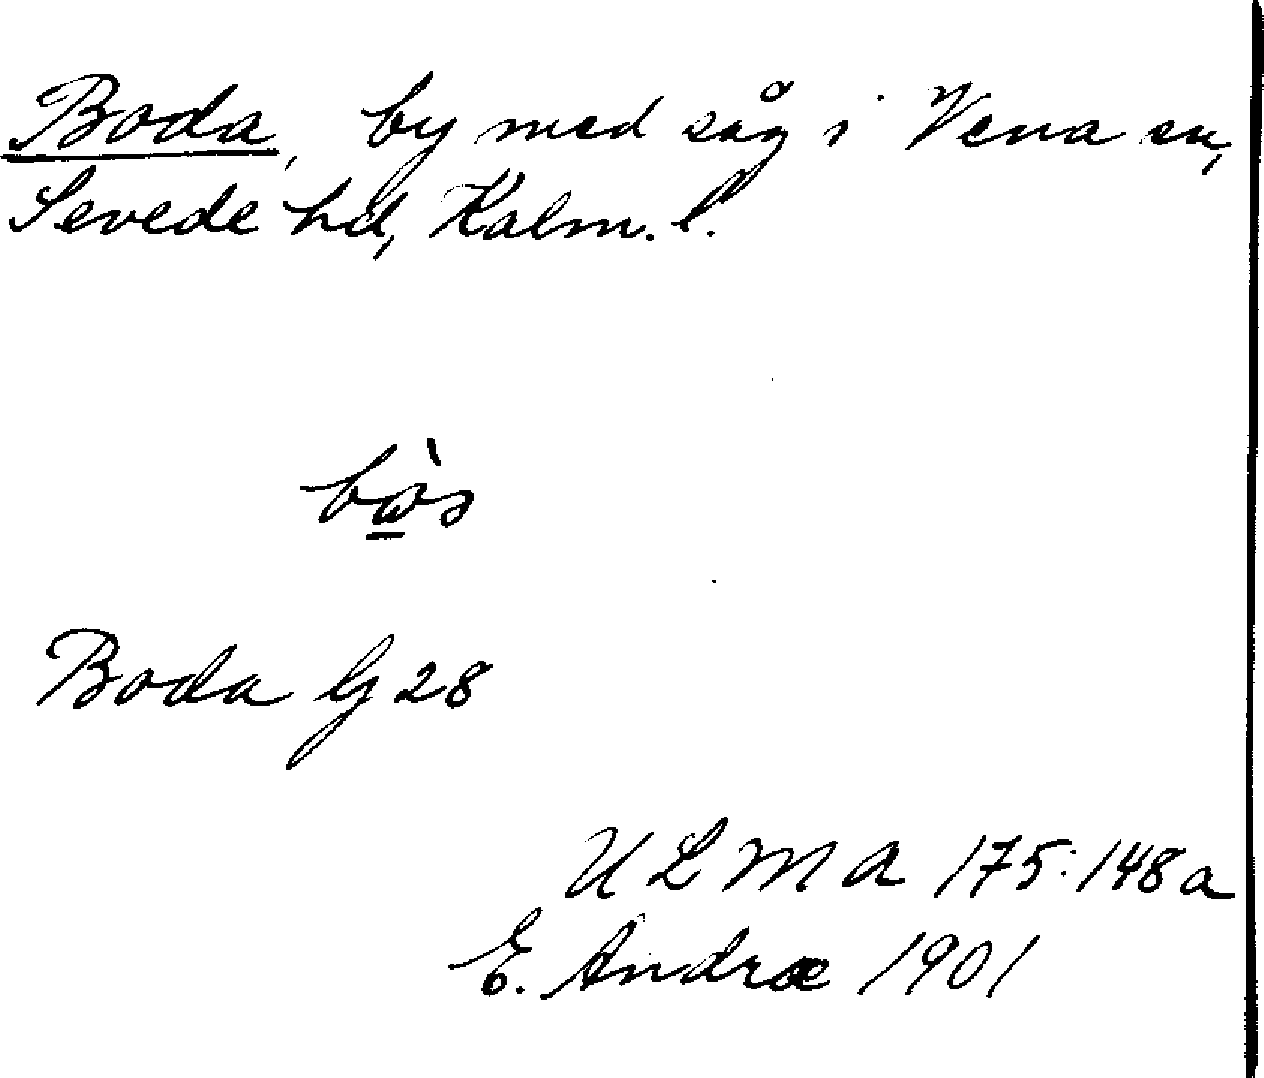 Boda, by med såg i Vena sn,
Sevede hd, Kalm. l.
Boda G 28
U L M A 175:148a
E. Andræ 1901